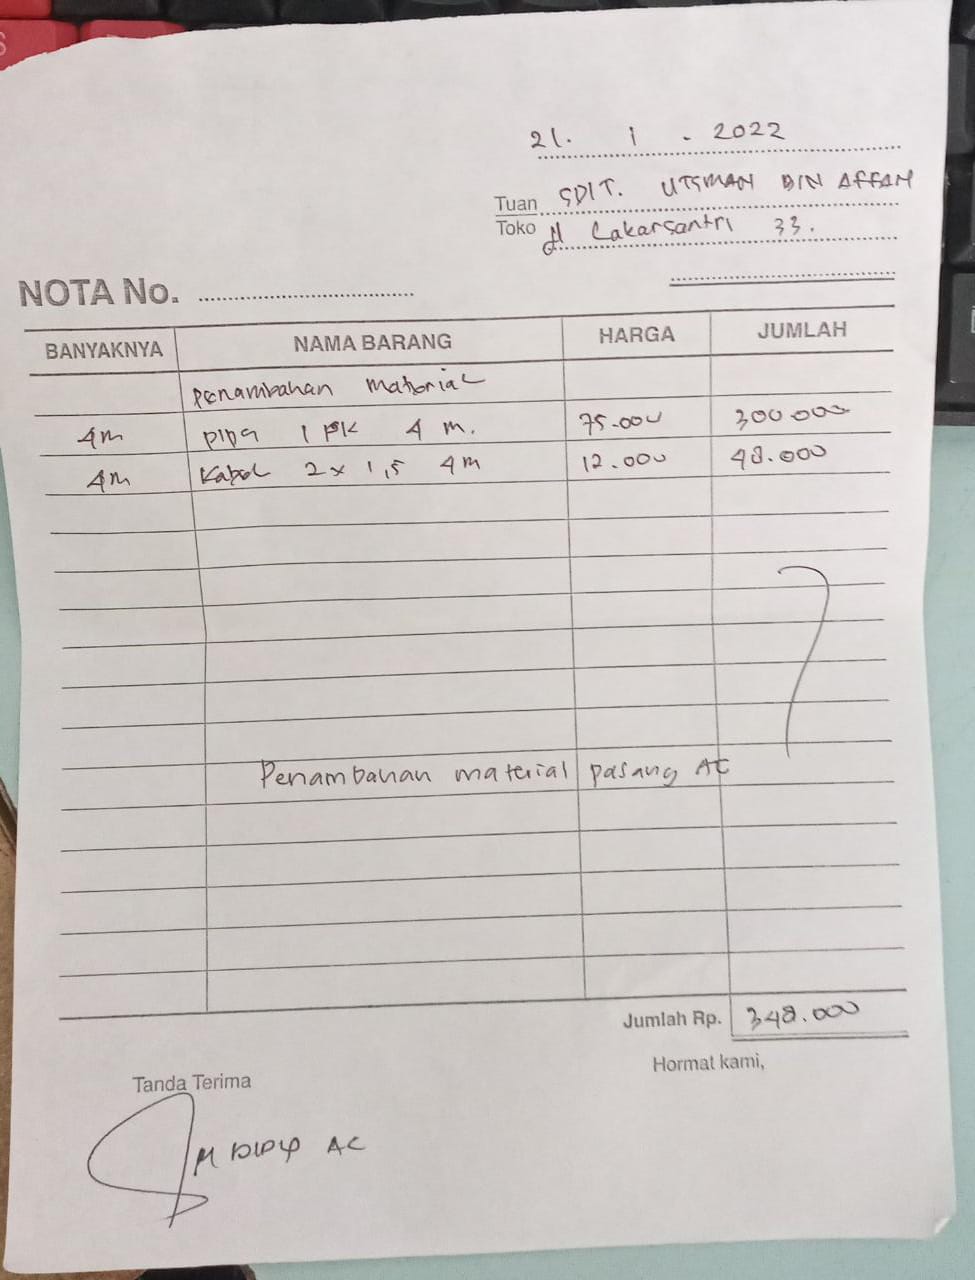 21. 1 - 2022
Tuan SDIT. UTSMAN BIN AFFAN
Toko Jl Lakarsantri 33.
NOTA No. ........................................
BANYAKNYA NAMA BARANG HARGA JUMLAH
Penambahan material
4m pipa 1 PK 4 m. 75.000 300.000
4m Kabel 2 x 1,5 4m 12.000 48.000
Penambahan material pasang AC
Jumlah Rp. 348.000
Hormat kami,
Tanda Terima
AC